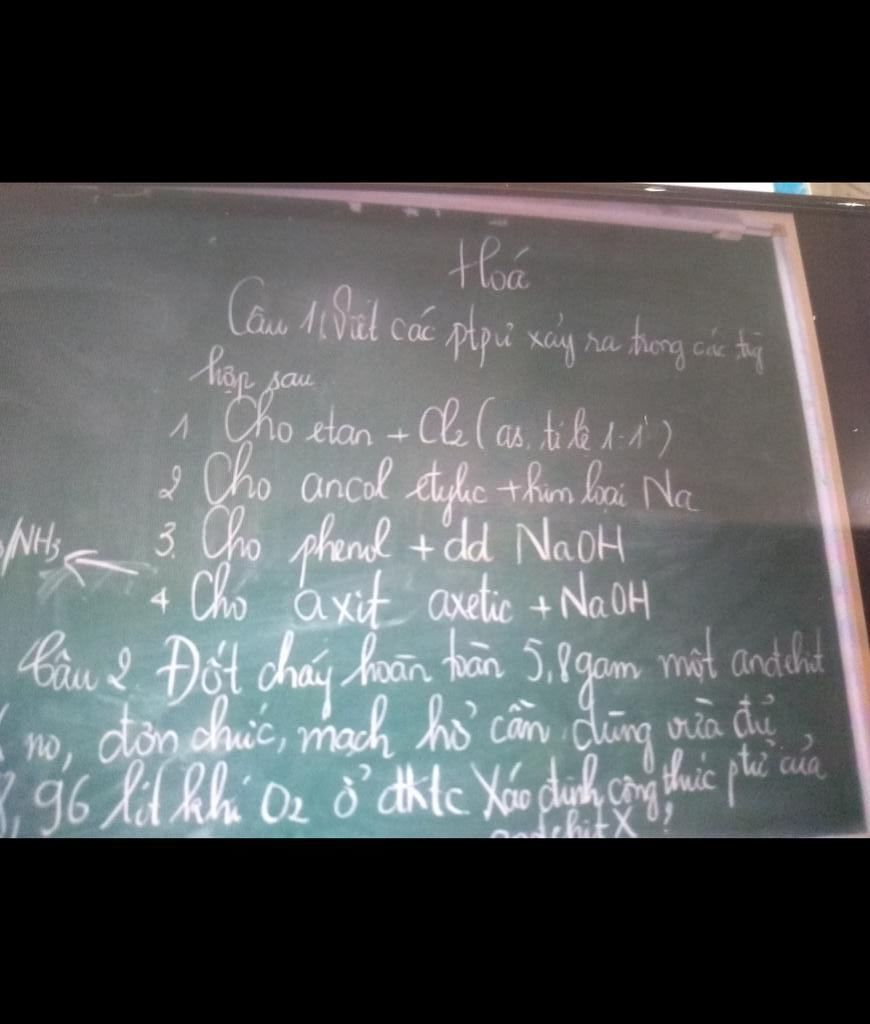 Hoá
Câu 1: Viết các ptpứ xảy ra trong các trg
hợp sau
1 Cho etan + Cl2 (as, tỉ lệ 1:1)
2 Cho ancol etylic + kim loại Na
3. Cho phenol + dd NaOH
/NH3
4 Cho axit axetic + NaOH
Câu 2. Đốt cháy hoàn toàn 5,8gam một anđehit
no, đơn chức, mạch hở cần dùng vừa đủ
8,96 lít khí O2 ở đktc Xác định công thức ptử của
anđehit X